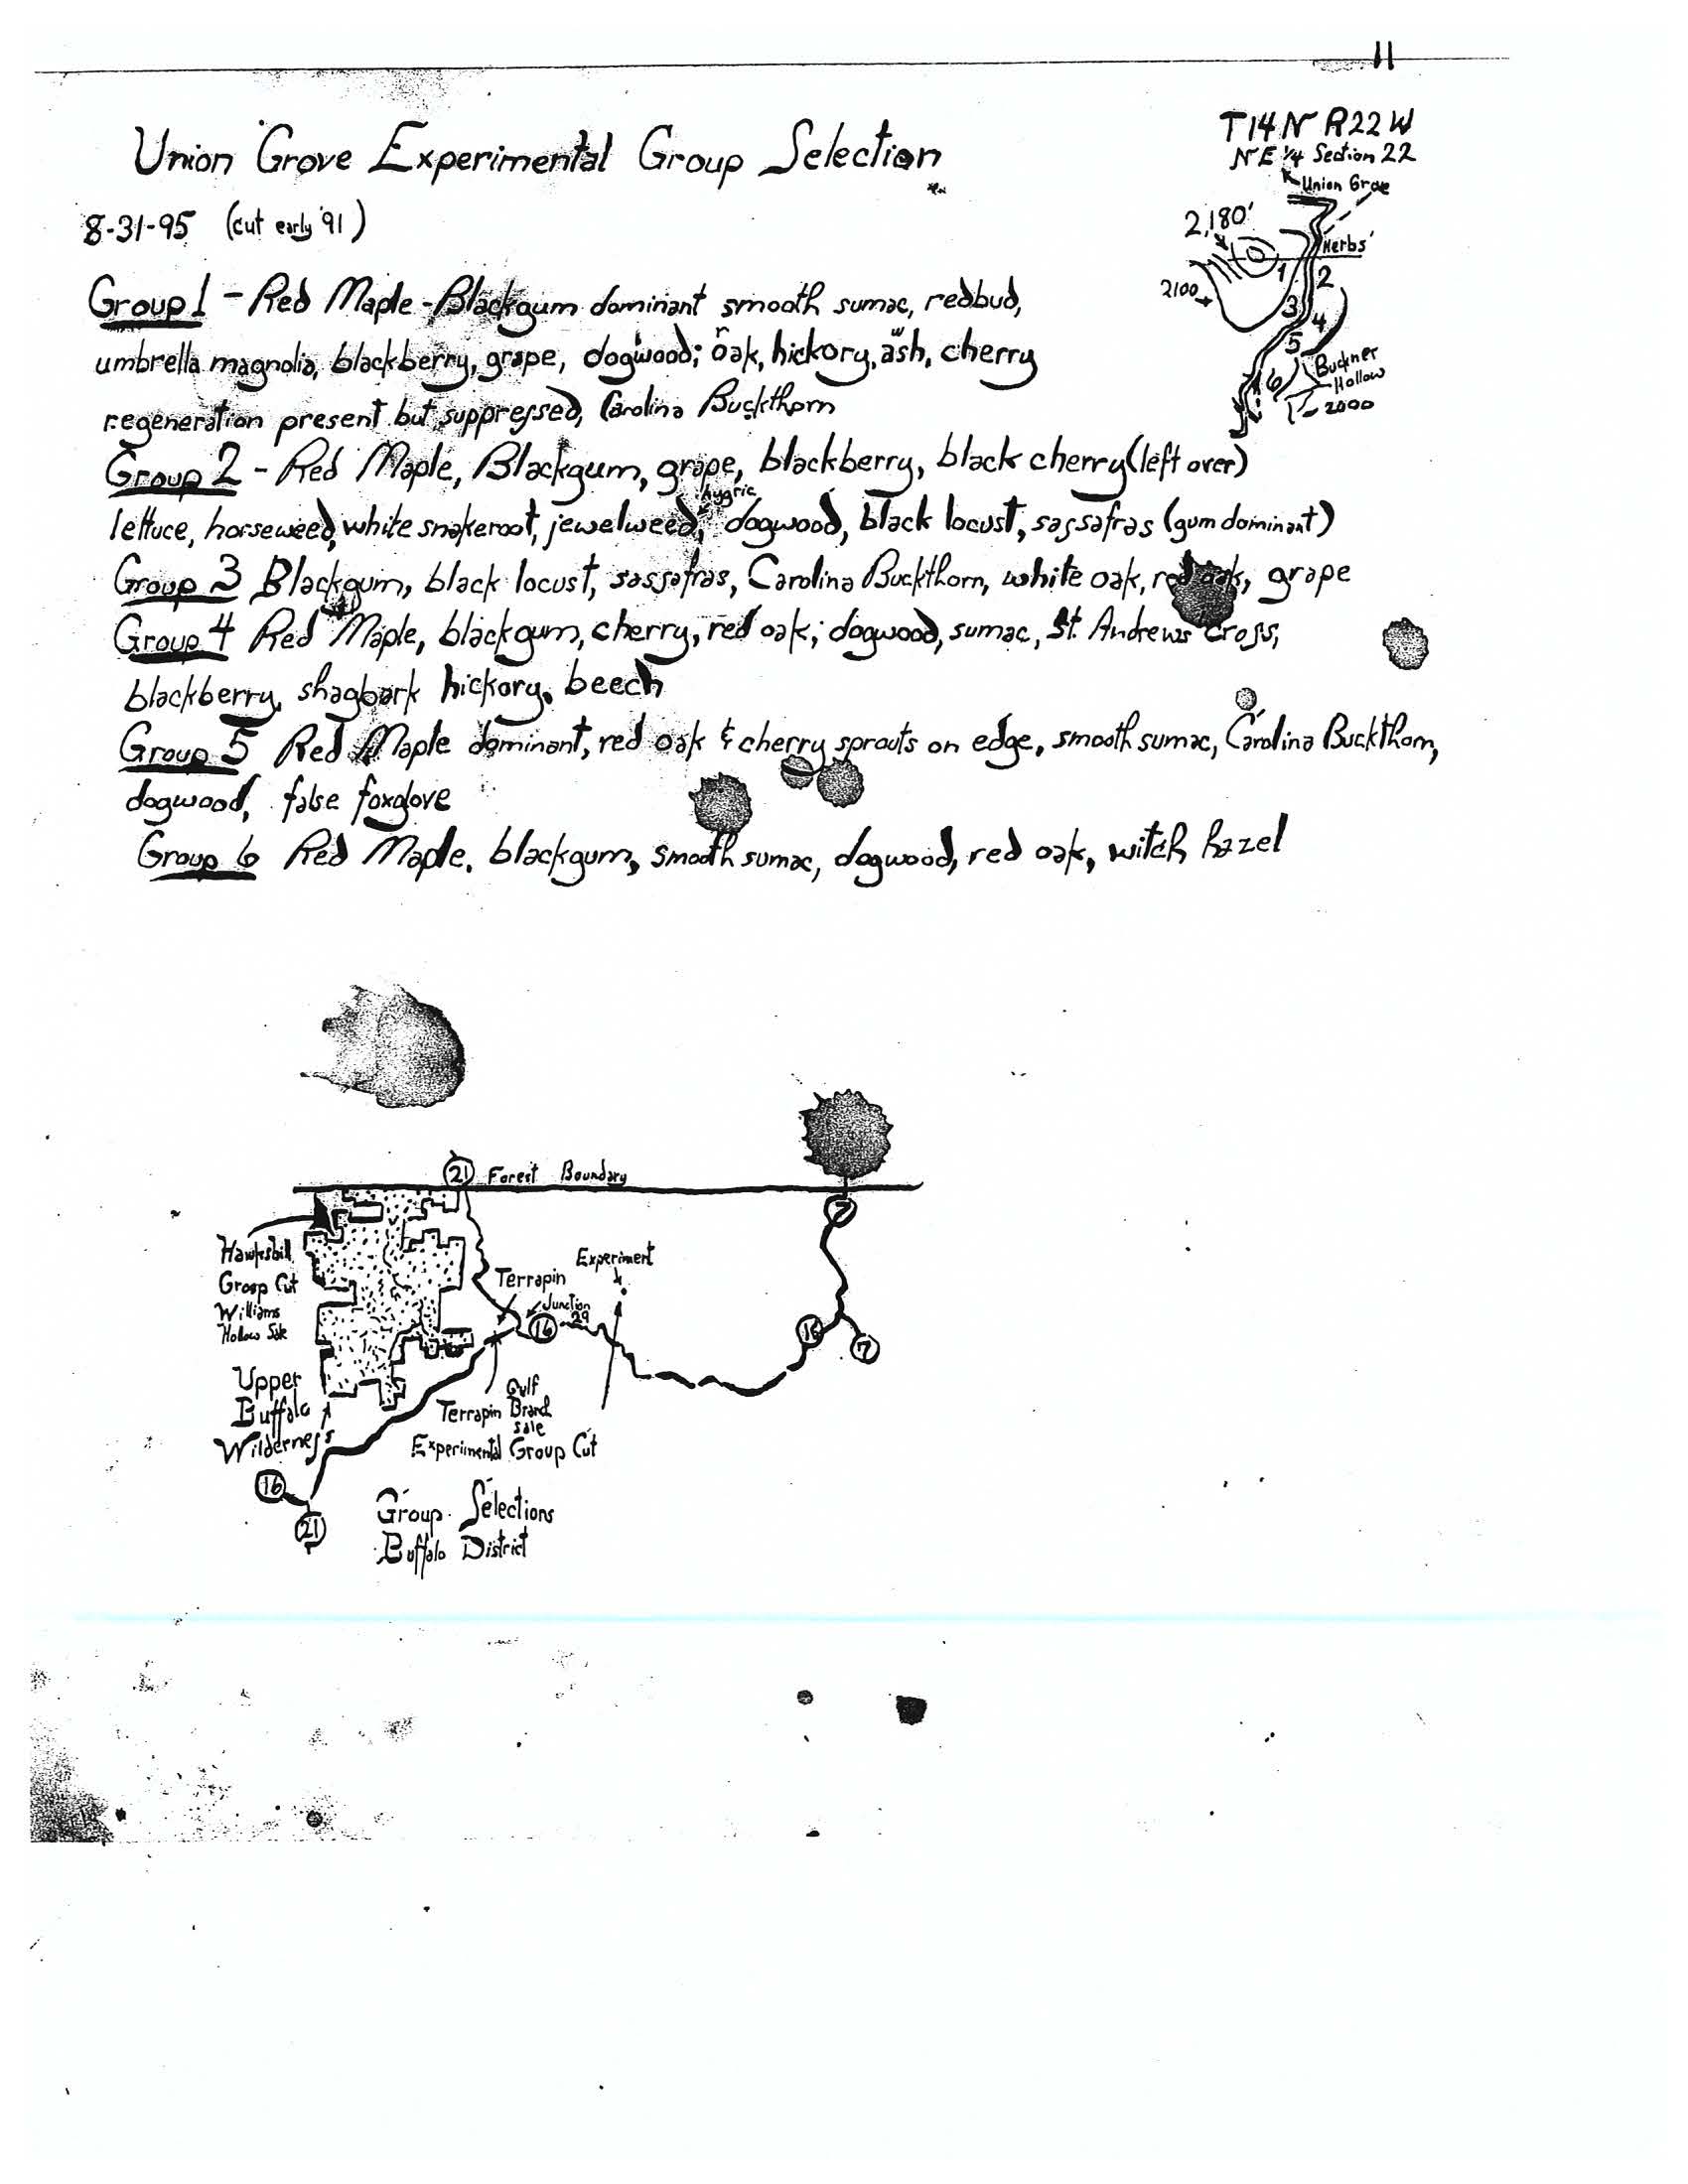 11
Union Grove Experimental Group Selection
T14N R22W
NE 1/4 Section 22
Union Grove
8-31-95 (cut early '91)
2,180'
Herbs'
2100
1
2
3
4
5
6
Buckner
Hollow
2000
Group 1 - Red Maple - Blackgum dominant smooth sumac, redbud,
umbrella magnolia, blackberry, grape, dogwood; r oak, hickory, w ash, cherry
regeneration present but suppressed, Carolina Buckthorn
Group 2 - Red Maple, Blackgum, grape, blackberry, black cherry (left over)
hygric
lettuce, horseweed, white snakeroot, jewelweed, dogwood, black locust, sassafras (gum dominant)
Group 3 Blackgum, black locust, sassafras, Carolina Buckthorn, white oak, red oak, grape
Group 4 Red Maple, blackgum, cherry, red oak; dogwood, sumac, St. Andrews Cross,
blackberry, shagbark hickory, beech
Group 5 Red Maple dominant, red oak & cherry sprouts on edge, smooth sumac, Carolina Buckthorn,
dogwood, false foxglove
Group 6 Red Maple, blackgum, smooth sumac, dogwood, red oak, witch hazel
21 Forest Boundary
7
Hawksbill
Group Cut
Williams
Hollow Sale
Experiment
Terrapin
Junction
29
16
16
7
Upper
Buffalo
Wilderness
Gulf
Terrapin Branch
Sale
Experimental Group Cut
16
21
Group Selections
Buffalo District